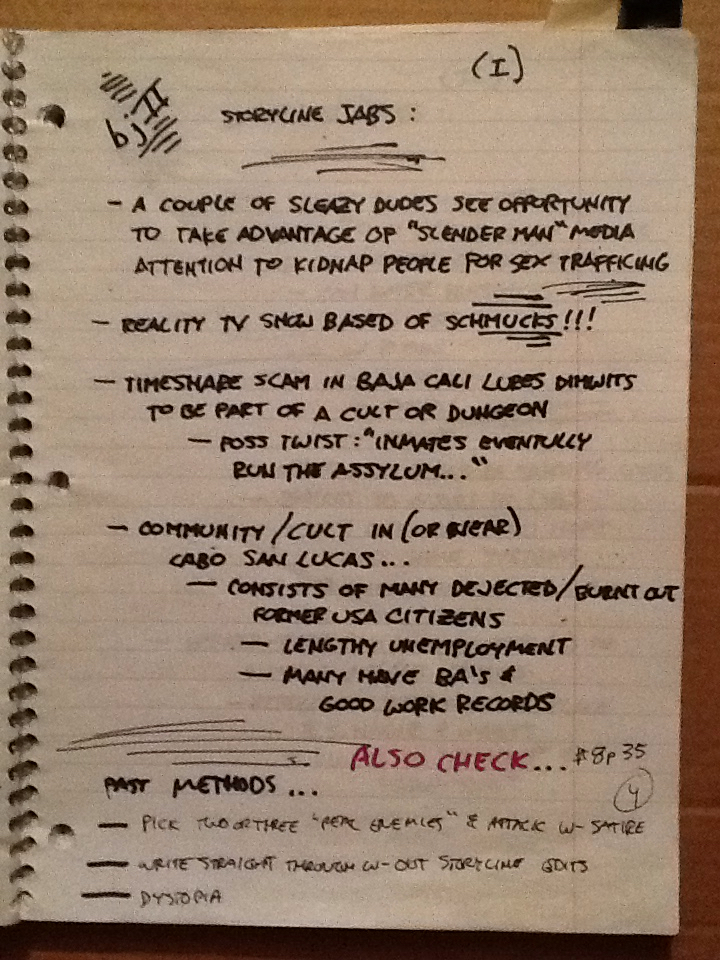 (I)
bj II
STORYLINE JABS :
- A COUPLE OF SLEAZY DUDES SEE OPPORTUNITY
TO TAKE ADVANTAGE OF "SLENDER MAN" MEDIA
ATTENTION TO KIDNAP PEOPLE FOR SEX TRAFFICING
- REALITY TV SHOW BASED OF SCHMUCKS!!!
- TIMESHARE SCAM IN BAJA CALI LURES DIMWITS
TO BE PART OF A CULT OR DUNGEON
- POSS TWIST: "INMATES EVENTULLY
RUN THE ASSYLUM..."
- COMMUNITY/CULT IN (OR NEAR)
CABO SAN LUCAS...
- CONSISTS OF MANY DEJECTED/BURNT OUT
FORMER USA CITIZENS
- LENGTHY UNEMPLOYMENT
- MANY HAVE BA'S &
GOOD WORK RECORDS
ALSO CHECK... #8p35
(4)
PAST METHODS...
- PICK TWO OR THREE "REAL ENEMIES" & ATTACK W- SATIRE
- WRITE STRAIGHT THROUGH W-OUT STORYLINE EDITS
- DYSTOPIA